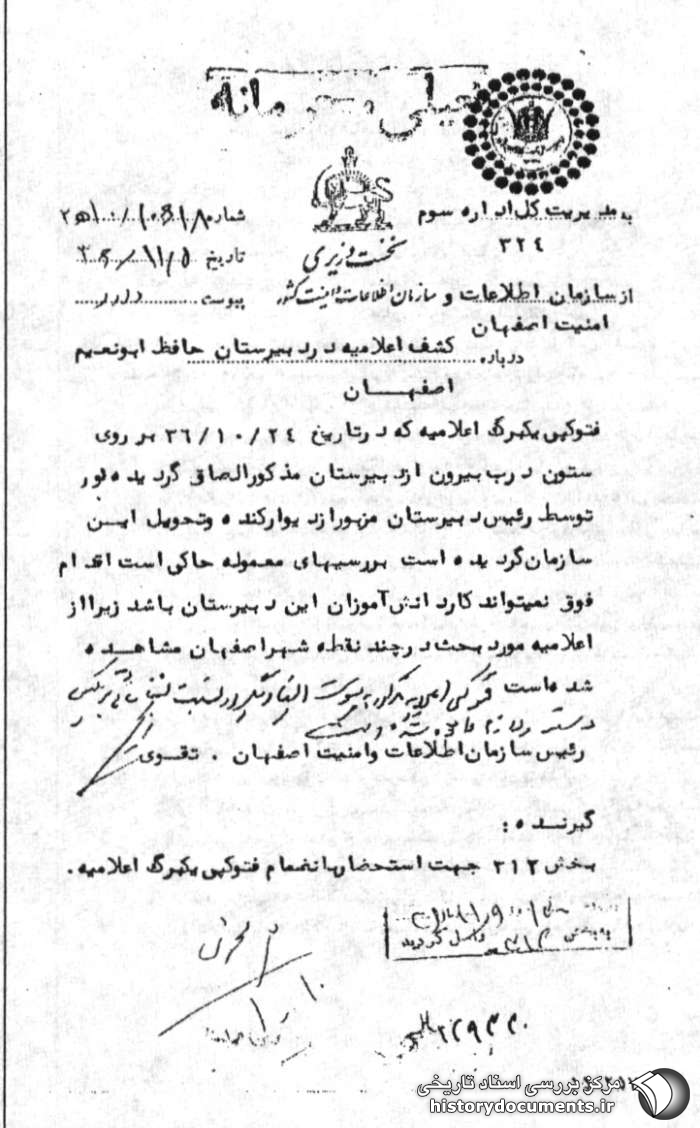 خیلی محرمانه
به مدیریت کل اداره سوم
۳۲۴
نخست وزیری
سازمان اطلاعات و امنیت کشور
شماره
تاریخ ۳۶/۱۱/۵
پیوست دارد
از سازمان اطلاعات و
امنیت اصفهان
درباره کشف اعلامیه در دبیرستان حافظ ابونعیم
اصفهان
فتوکپی یکبرگ اعلامیه که در تاریخ ۳۶/۱۰/۲۴ بر روی
ستون درب بیرون از دبیرستان مذکور الصاق گردیده بود
توسط رئیس دبیرستان مزبور از دیوار کنده و تحویل این
سازمان گردیده است بررسیهای معموله حاکی است اقدام
فوق نمیتواند کار دانش آموزان این دبیرستان باشد زیرا از
اعلامیه مورد بحث در چند نقطه شهر اصفهان مشاهده
شده است
رئیس سازمان اطلاعات و امنیت اصفهان . تقوی
گیرنده :
بخش ۳۱۲ جهت استحضار بانضمام فتوکپی یکبرگ اعلامیه .
واصل گردید
مرکز بررسی اسناد تاریخی
historydocuments.ir